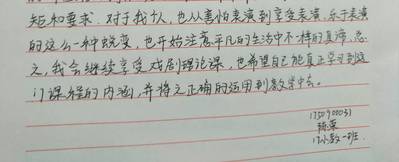 知和要求。对于我们，也从害怕表演到享受表演，乐于表演
的这么一种蜕变，也开始注意平凡的生活中不一样的真谛。总
之，我会继续享受戏剧理论课，也希望自己能真正学习到这
门课程的内涵，并将之正确的运用到教学中去。
1750900031
17小教一班